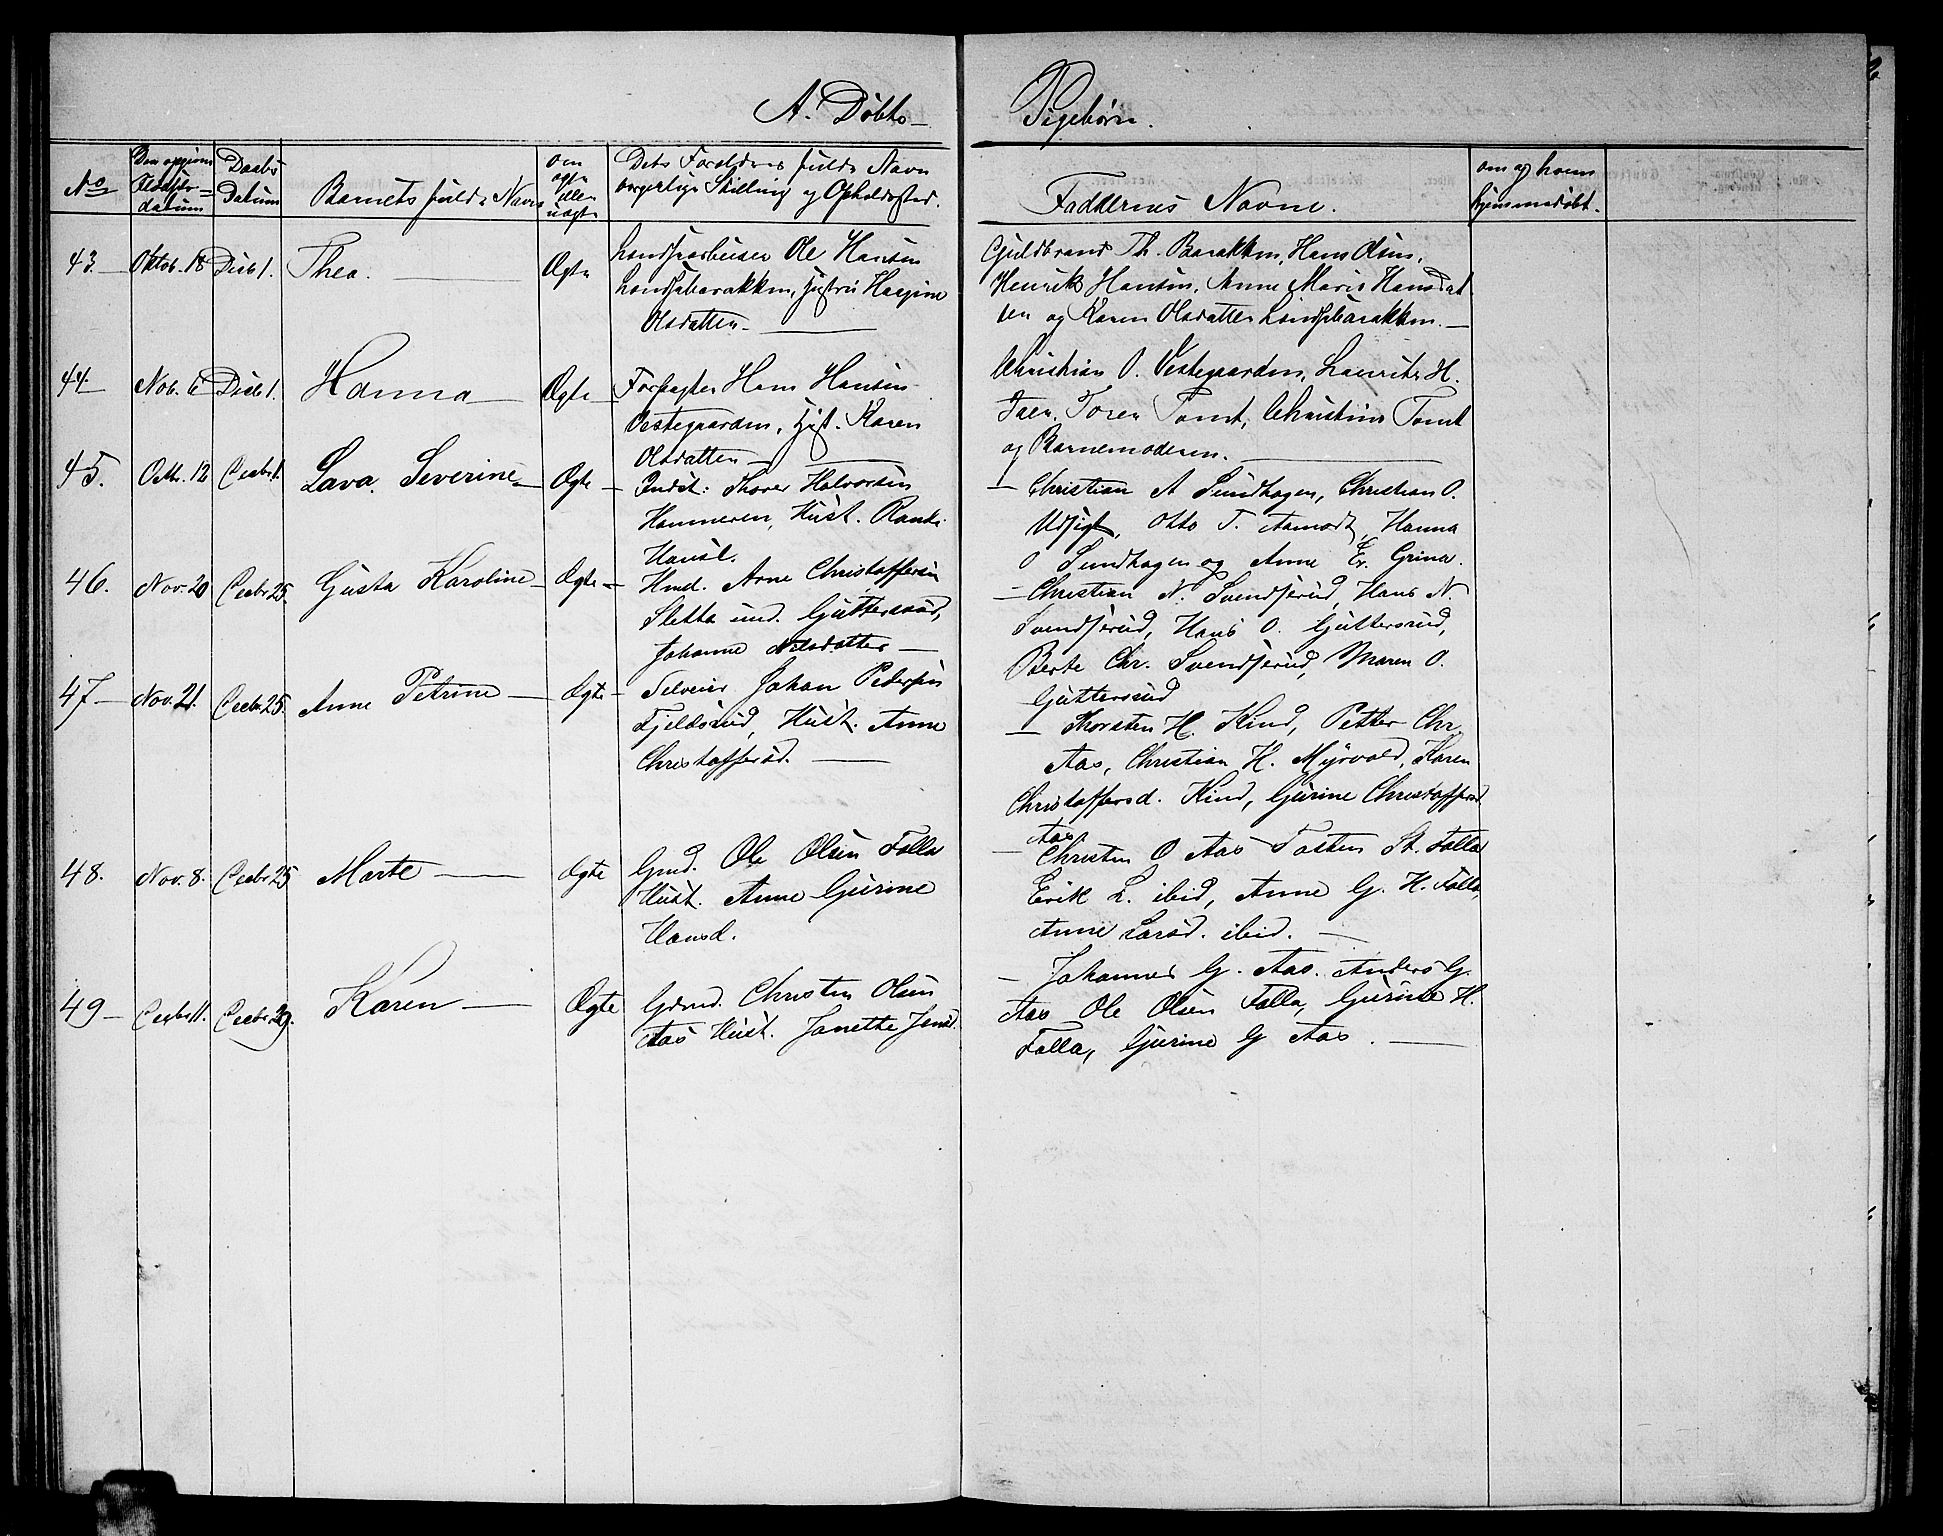 A. Døbte Pigebørn.
No
Den opgivne Fødselsdatum
Daabs Datum
Barnets fulde Navn
om ægte eller uægte
Dets Forældres fulde Navn borgerlige Stilling og Opholdssted.
Faddernes Navne.
om og hvem hjemmedøbt.
43. Oktob. 18 Decb 1. Thea. Ægte
Ole Hansen
Hustru
Olsdatter
Guldbrand Th. Barakken, Hans Olsen,
Henrik Hansen, Anne Marie Hansdat
ter og Karen Olsdatter
44. Nob. 6 Decb 1. Hanna Ægte
Forpagter Hans Hansen
Vestegaarden, Hust. Karen
Olsdatter
Christian O. Vestegaarden, Lauritz H.
Toren Tomt, Christine Tomt
og Barnemoderen.
45. Octb. 12 Decbr 1. Lava Severine Ægte
Indst: Thorer Halvorsen
Hammeren, Hust. Randi
Hansd.
Christian A Sundhagen, Christian O.
Udsigt, Otto T. Aamodt, Hanna
O Sundhagen og Anne Er. Grina.
46. Nov. 20 Decbr 25. Gusta Karoline Ægte
Hmd. Arne Christoffersen
Sletta und. Guttersrud,
Johanne Nilsdatter
Christian N. Svendserud, Hans N.
Svendserud, Hans O. Guttersrud,
Berte Chr. Svendserud, Maren O.
Guttersrud
47 Nov. 21. Decbr 25. Anne Petrine Ægte
Selveier Johan Pedersen
Fjeldsrud, Hust. Anne
Christoffersd.
Thorsten H. Kind, Petter Chr.
Aas, Christian H. Myrvold, Karen
Christoffersd. Kind, Gurine Christoffersd
Aas
48. Nov. 8. Decbr 25 Marte Ægte
Gmd. Ole Olsen Falla
Hust. Anne Gurine
Hansd.
Christen O Aas Tosten St. Falla
Erik L. ibid, Anne G. H. Falla,
Anne Larsd. ibid.
49 Decbr 11. Decbr 29. Karen Ægte
Gdmd. Christen Olsen
Aas Hust. Janette Jensd.
Johannes G. Aas. Anders G.
Aas Ole Olsen Falla, Gurine H.
Falla, Gurine G Aas.